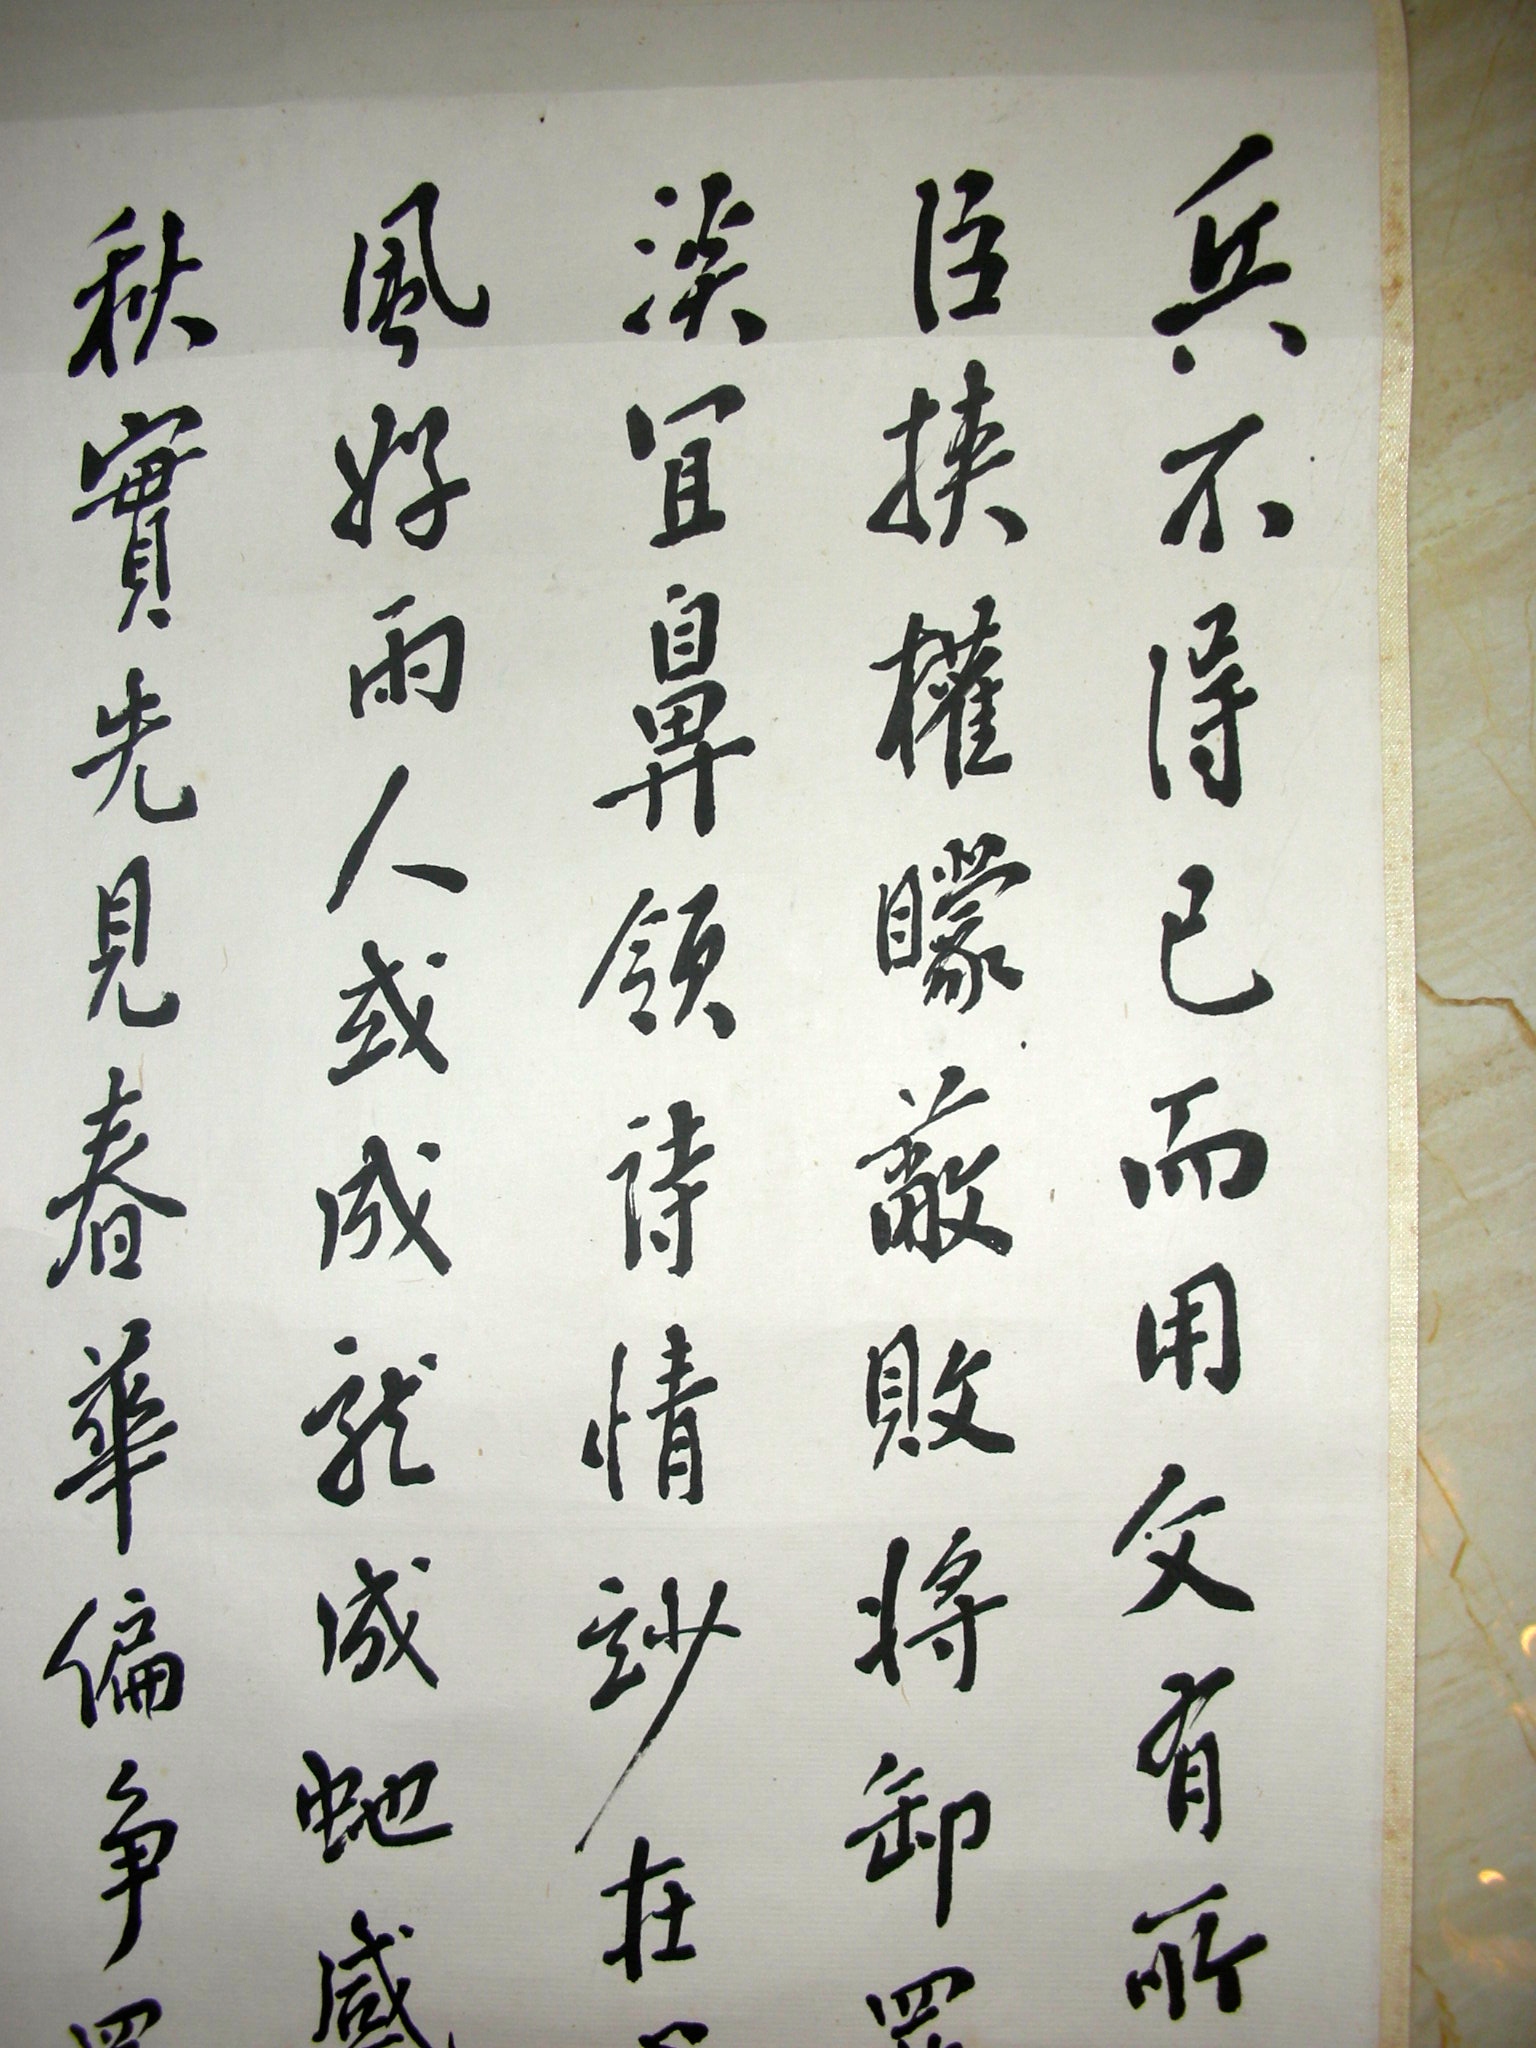 兵不得已而用文有所
臣挾權矇蔽敗將卸罪
淡宜鼻領詩情妙在
風好雨人或成龍成蛇感
秋實先見春華偏爭